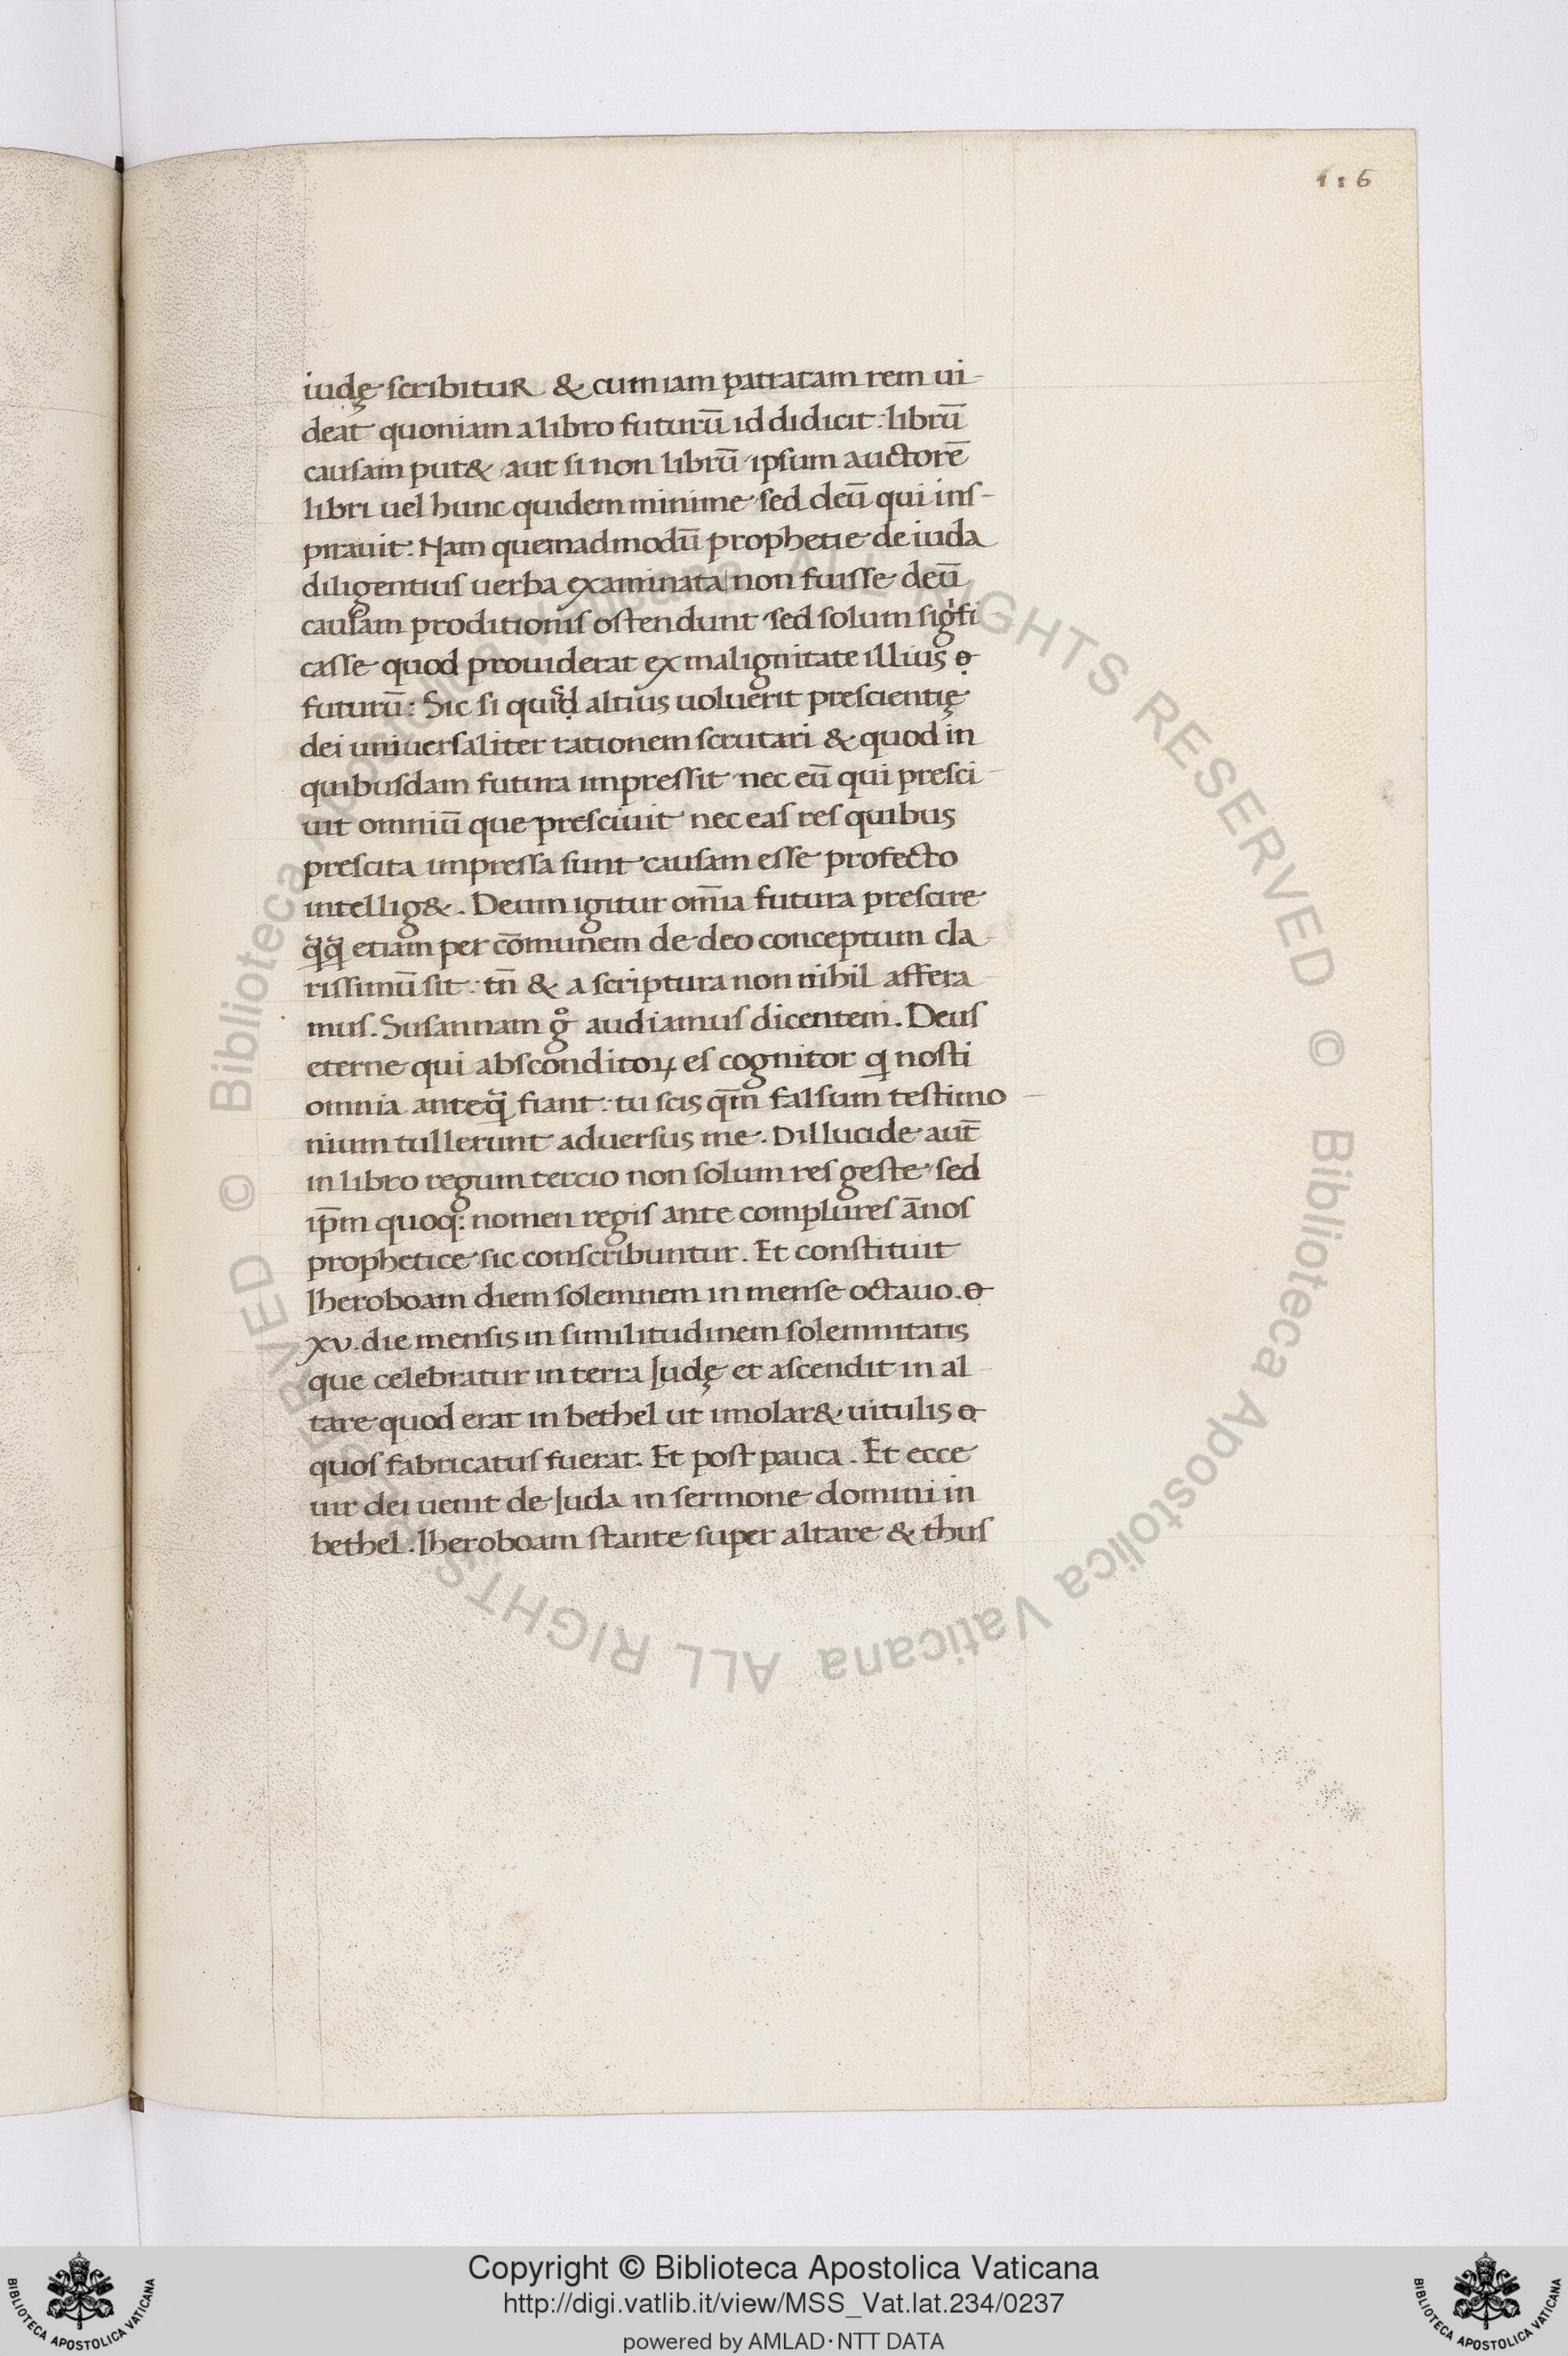 116
iudę scribitur & cum iam patratam rem ui-
deat quoniam a libro futurū id didicit: librū
causam put& aut si non librū ipsum auctorē
libri uel hunc quidem minime sed deū qui ins-
pirauit: Nam quemadmodū prophetie de iuda
diligentius uerba examinata non fuisse deū
causam proditionis ostendunt sed solum sigͥfi
casse quod prouiderat ex malignitate illius
futurū: Sic si quisd altius uoluerit prescientię
dei uniuersaliter rationem scrutari & quod in
quibusdam futura impressit nec eū qui presci
uit omniū que presciuit nec eas res quibus
prescita impressa sunt causam esse profecto
intellig&. Deum igitur om̄ia futura prescire
qͣ̄qͣ̄ etiam per cōmunem de deo conceptum cla
rissimū sit: tn̄ & a scriptura non nihil affera
mus. Susannam gͦ audiamus dicentem. Deus
eterne qui absconditoꝝ es cognitor q nosti
omnia anteqͣ̄ fiant: tu scis qm̄ falsum testimo
nium tullerunt aduersus me. Dillucide aut̄
in libro regum tercio non solum res geste sed
ip̄m quoq: nomen regis ante complures ānos
prophetice sic conscribuntur. Et constituit
Iheroboam diem solemnem in mense octauo.
xv. die mensis in similitudinem solemnitatis
que celebratur in terra Iudę et ascendit in al
tare quod erat in bethel ut imolar& uitulis
quos fabricatus fuerat. Et post pauca. Et ecce
uir dei uenit de Iuda in sermone domini in
bethel. Iheroboam stante super altare & thus
© Biblioteca Apostolica Vaticana ALL RIGHTS RESERVED
© Biblioteca Apostolica Vaticana ALL RIGHTS RESERVED
Copyright © Biblioteca Apostolica Vaticana
http://digi.vatlib.it/view/MSS_Vat.lat.234/0237
powered by AMLAD·NTT DATA
BIBLIOTECA APOSTOLICA VATICANA
BIBLIOTECA APOSTOLICA VATICANA